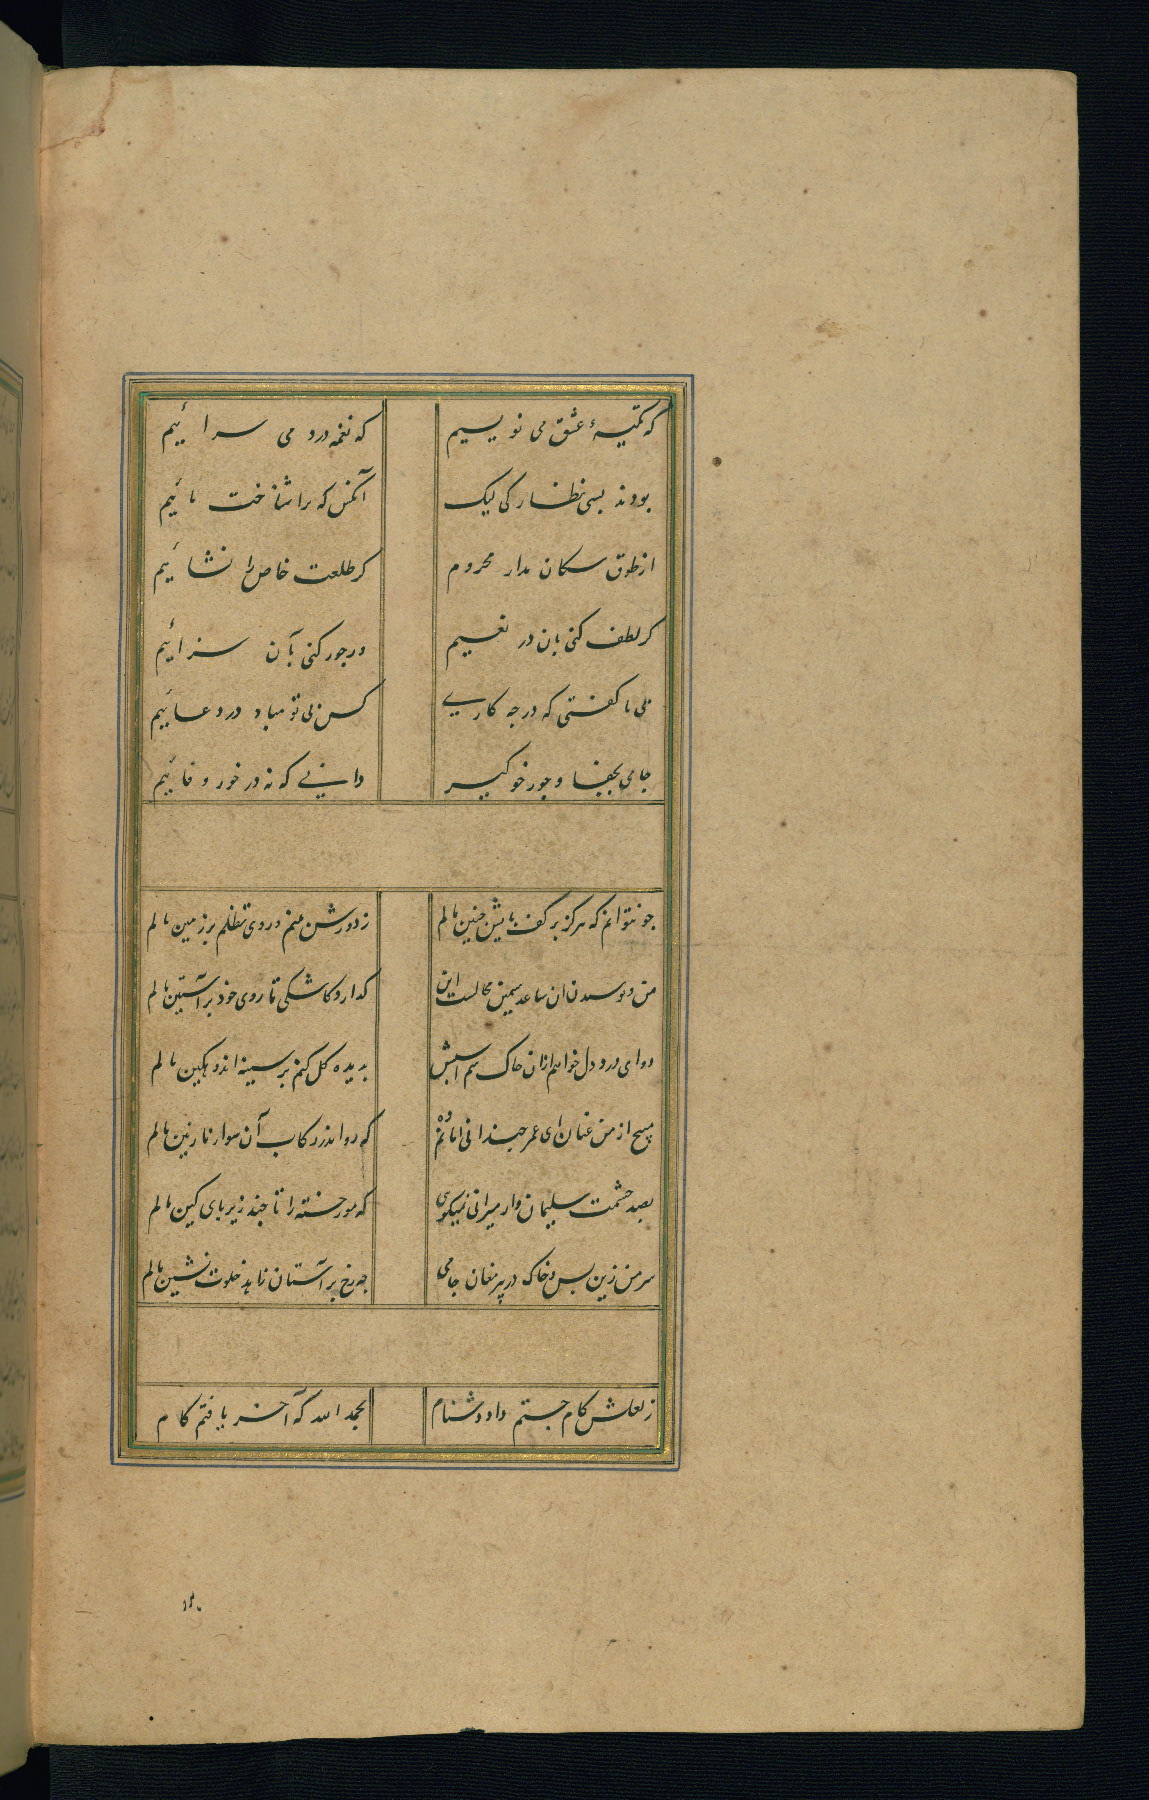 که نکتهٔ عشق می نویسیم که نغمه درد می سرائیم
بودند بسی نظارکی لیک آنکس که ترا شناخت مائیم
از طوق سکان مدار محروم کر خلعت خاص را نشائیم
کر لطف کنی بان در نعیم ور جور کنی بآن سزائیم
بی ما کفتی که در چه کاریی کس بی تو مباد در دعائیم
جامی بجفا و جور خو کیر دانی که نه در خور وفائیم
چو نتوانم که هرکز بر کف پایش جبین مالم ز دورش بینم و روی تظلم بر زمین مالم
من و بوسیدن آن ساعد سیمین محالست این کذارد کاشکی تا روی خود بر آستین مالم
دوای درد دل خواهم ازان خاک سم اسبش بدیده کل کنم بر سینه اندوهکین مالم
مپیچ از من عنان ای عمر چندانی امانم ده که رو اندر رکاب آن سوار نازنین مالم
بصد حشمت سلیمان وار میرانی نمیکویی که مور خسته را تا چند زیر پای کین مالم
سر من زین پس و خاک در پیر مغان جامی چه رخ بر آستان زاهد خلوت نشین مالم
ز لعلش کام جستم داد دشنام بحمد الله که آخر یافتم کام